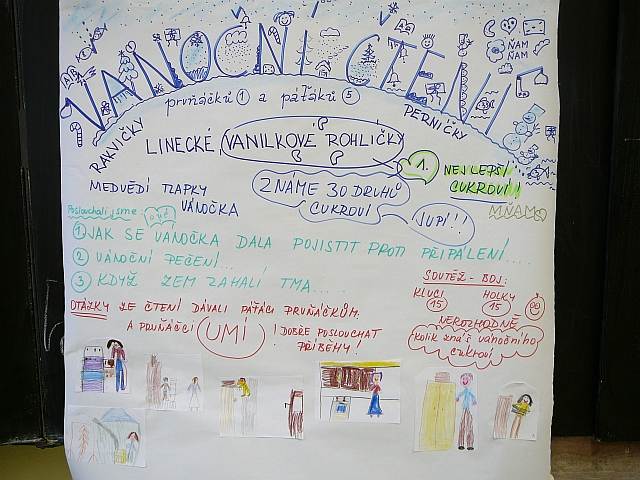 VÁNOČNÍ ČTENÍ
ŇAM
ŇAM
prvňáčků 1 a páťáků 5
RAKVIČKY
LINECKÉ, VANILKOVÉ ROHLÍČKY
PERNÍČKY
1. NEJLEPŠÍ
CUKROVÍ!
MEDVĚDÍ TLAPKY
VÁNOČKA
ZNÁME 30 DRUHŮ
CUKROVÍ
JUPÍ!!!
MŇAM
Poslouchali jsme:
1 JAK SE VÁNOČKA DALA POJISTIT PROTI PŘIPÁLENÍ.....
2 VÁNOČNÍ PEČENÍ...
3 KDYŽ ZEM ZAHALÍ TMA....
SOUTĚŽ - BOJ:
KLUCI HOLKY
15 15
NEROZHODNĚ
Kolik znáš vánočního
cukroví
OTÁZKY ZE ČTENÍ DÁVALI PÁŤÁCI PRVŇÁČKŮM.
A PRVŇÁČCI UMÍ DOBŘE POSLOUCHAT
PŘÍBĚHY!